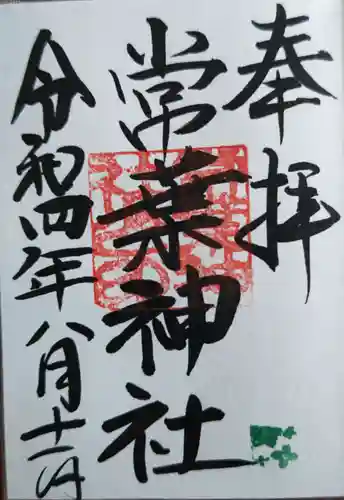 奉拝
常葉神社
令和四年八月十一日